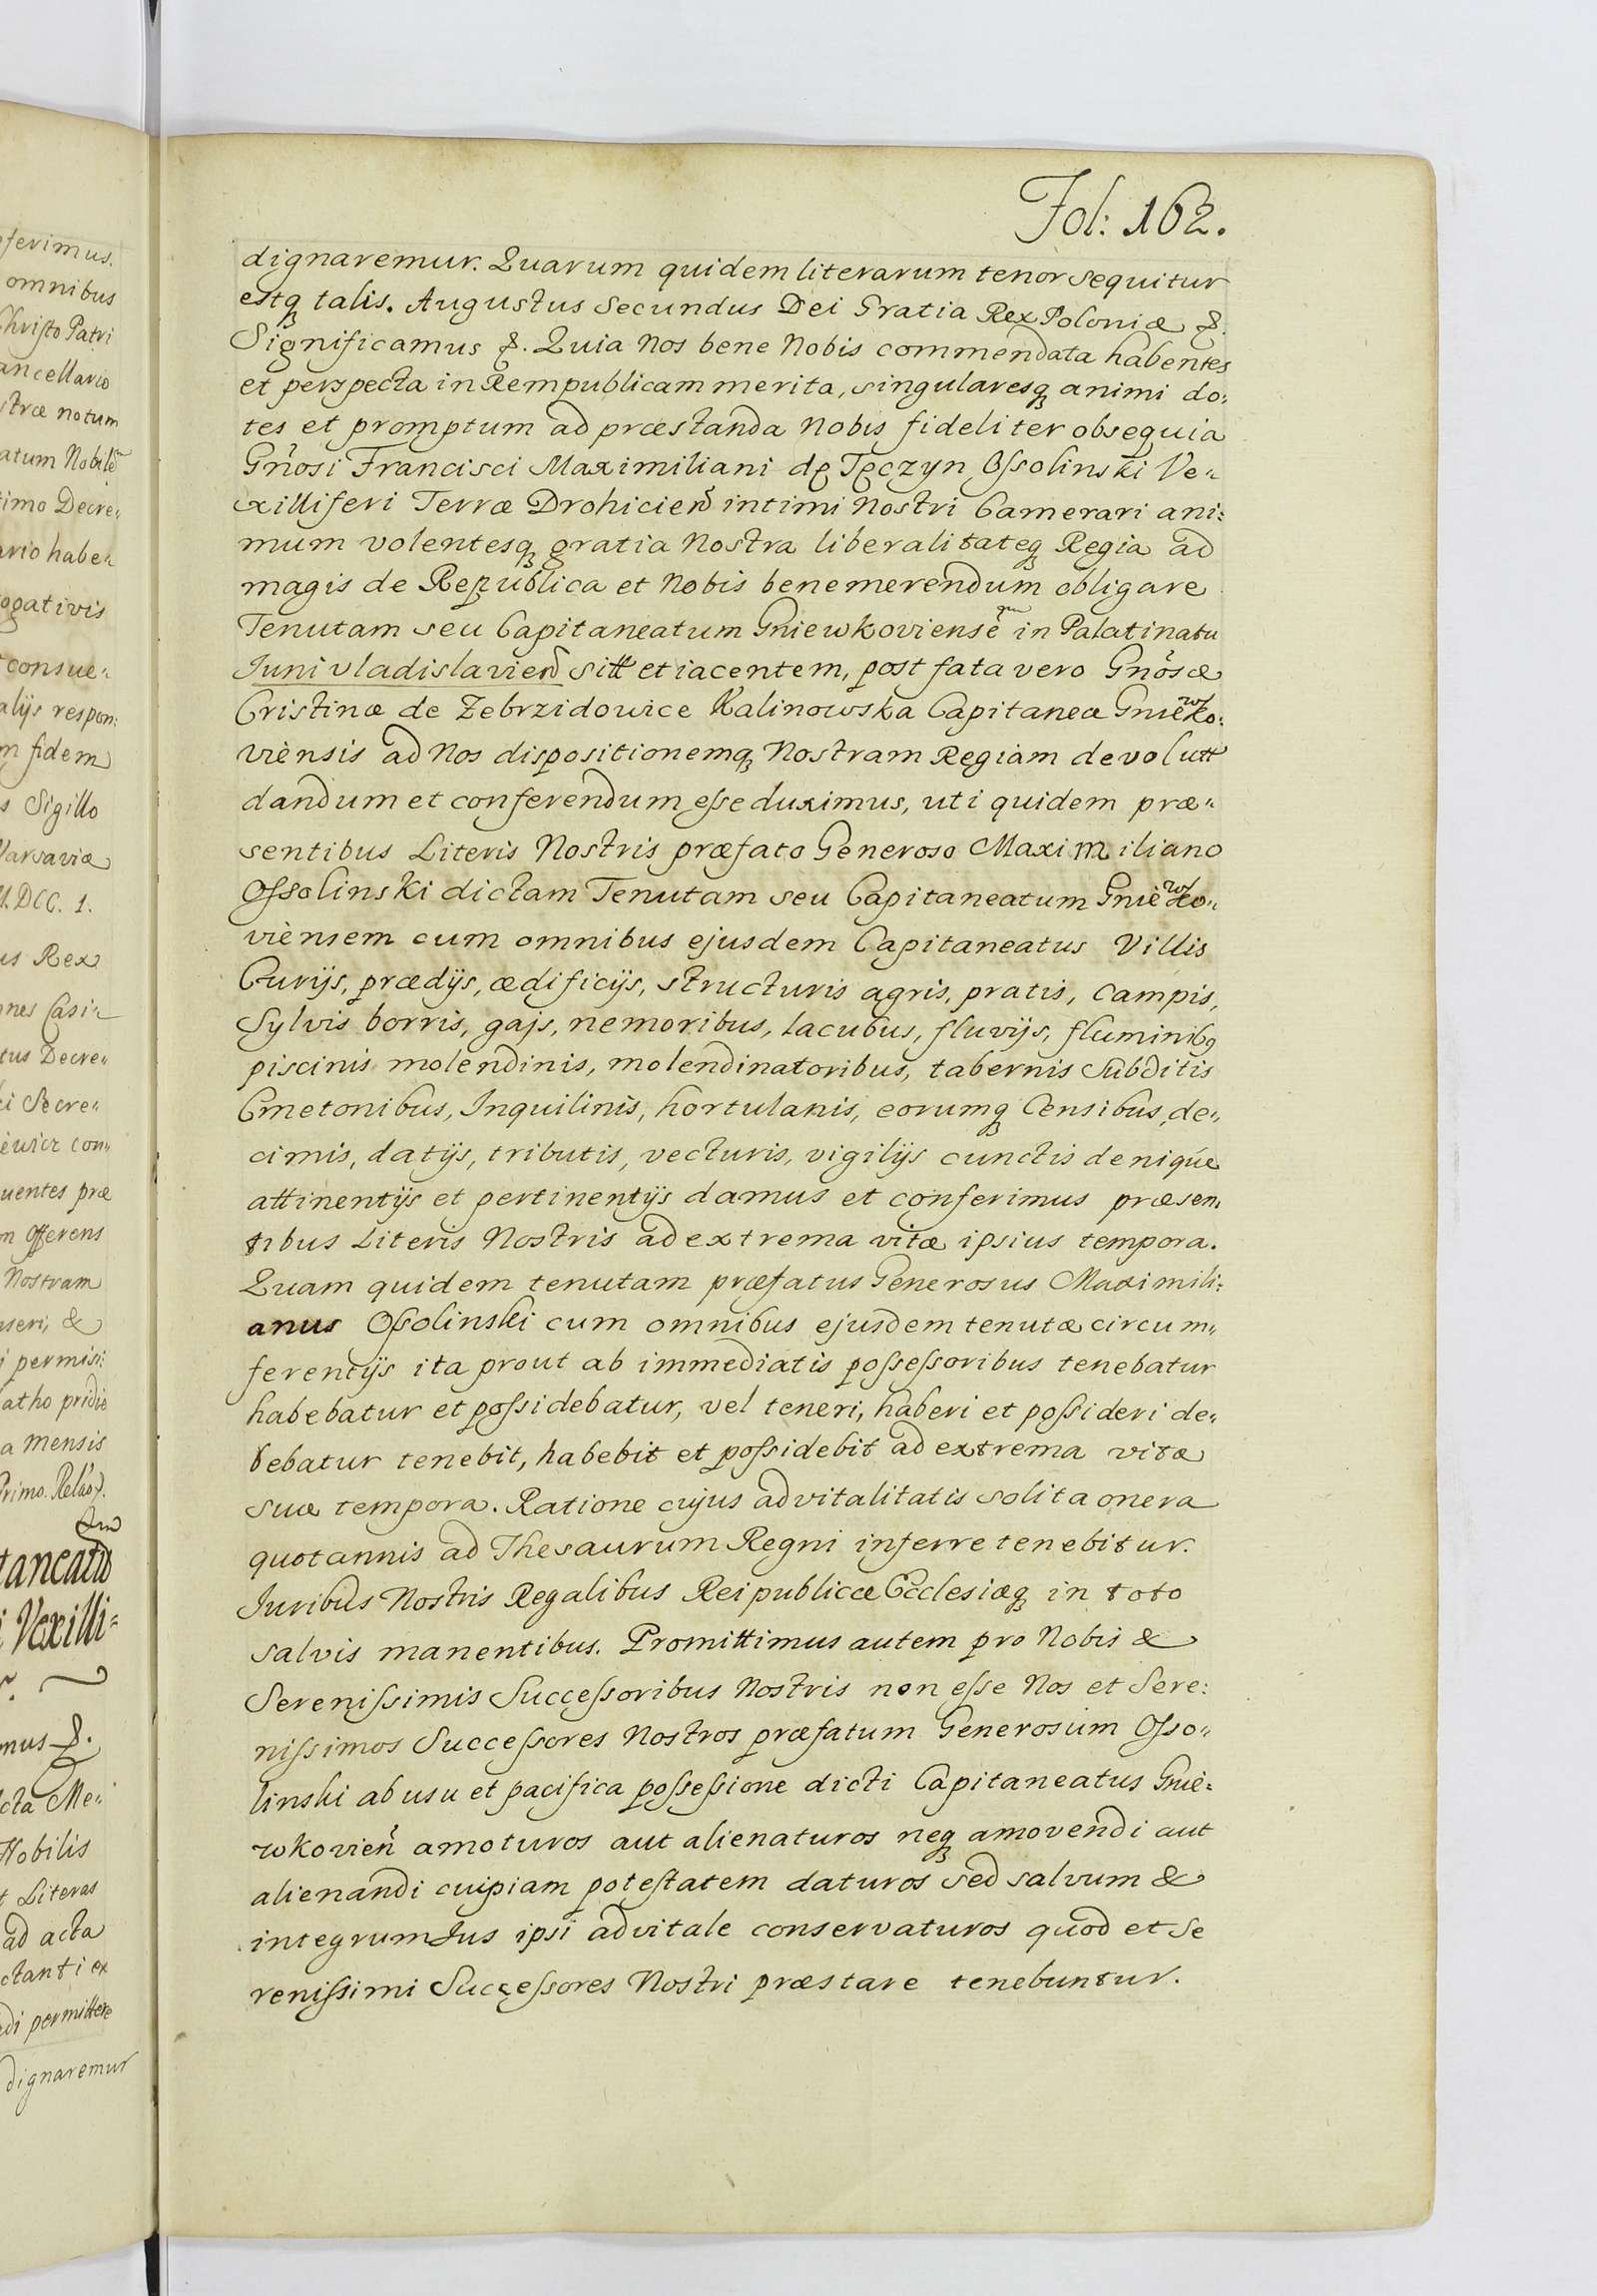 Fol: 162.
dignaremur. Quarum quidem literarum tenor sequitur
estq talis. Augustus Secundus Dei Gratia Rex Poloniæ &.
Significamus &. Quia Nos bene Nobis commendata habentes
et perspecta in Rempublicam merita, singularesq animi do:
tes et promptum ad præstanda Nobis fideliter obsequia
Gñosi Francisci Maximiliani de Tęczyn Ossolinski Ve„
xilliferi Terræ Drohicieñ intimi Nostri Camerari ani:
mum volentesq gratia Nostra liberalitateq Regia ad
magis de Republica et Nobis benemerendum obligare
Tenutam seu Capitaneatum Gniewkoviensem̃ in Palatinatu
Junivladislavieñ sitt et iacentem, post fata vero Gñosæ
Cristinæ de Zebrzidowice Kalinowska Capitaneæ Gniewko:
viensis ad Nos dispositionemq Nostram Regiam devolutt
dandum et conferendum esse duximus, uti quidem præ„
sentibus Literis Nostris præfato Generoso Maximiliano
Ossolinski dictam Tenutam seu Capitaneatum Gniewko„
viensem cum omnibus ejusdem Capitaneatus Villis
Curijs, prædijs, ædificijs, structuris agris, pratis, Campis,
Sylvis borris, gajs, nemoribus, lacubus, fluvijs, fluminibq
piscinis molendinis, molendinatoribus, tabernis Subditis
Cmetonibus, Inquilinis, hortulanis, eorumq Censibus, de„
cimis, datijs, tributis, vecturis, vigilijs cunctis denique
attinentijs et pertinentijs damus et conferimus præsen„
tibus Literis Nostris ad extrema vitæ ipsius tempora.
Quam quidem tenutam præfatus Generosus Maximili:
anus Ossolinski cum omnibus ejusdem tenutæ circum„
ferentijs ita prout ab immediatis possessoribus tenebatur
habebatur et possidebatur, vel teneri, haberi et possideri de„
bebatur tenebit, habebit et possidebit ad extrema vitæ
suæ tempora. Ratione cujus advitalitatis solita onera
quotannis ad Thesaurum Regni inferre tenebitur.
Juribus Nostris Regalibus Reipublicæ Ecclesiæq in toto
salvis manentibus. Promittimus autem pro Nobis &
Serenissimis Successoribus Nostris non esse Nos et Sere:
nissimos Successores Nostros præfatum Generosum Osso„
linski ab usu et pacifica possessione dicti Capitaneatus Gnie:
wkovieñ amoturos aut alienaturos neq amovendi aut
alienandi cuipiam potestatem daturos sed salvum &
integrum Jus ipsi advitale conservaturos quod et Se
renissimi Successores Nostri præstare tenebuntur.